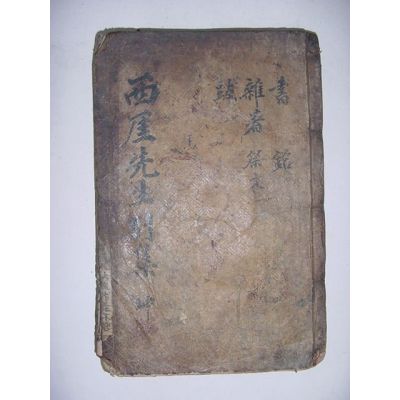 書 銘
雜著 祭文
跋
西厓先生別集